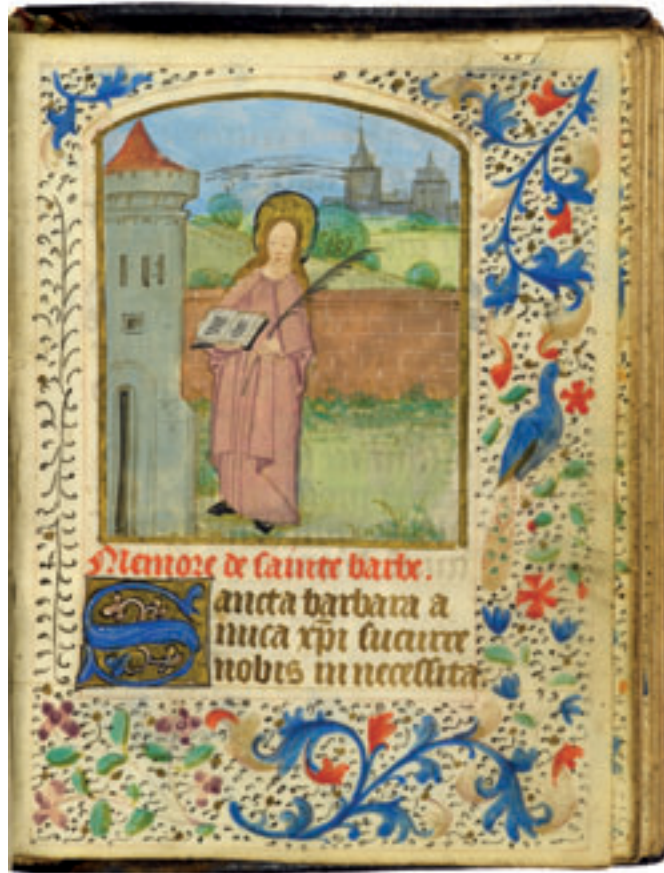 Memore de sainte barbe.
Sancta barbara a
mica xp̄i sucurre
nobis in necessita